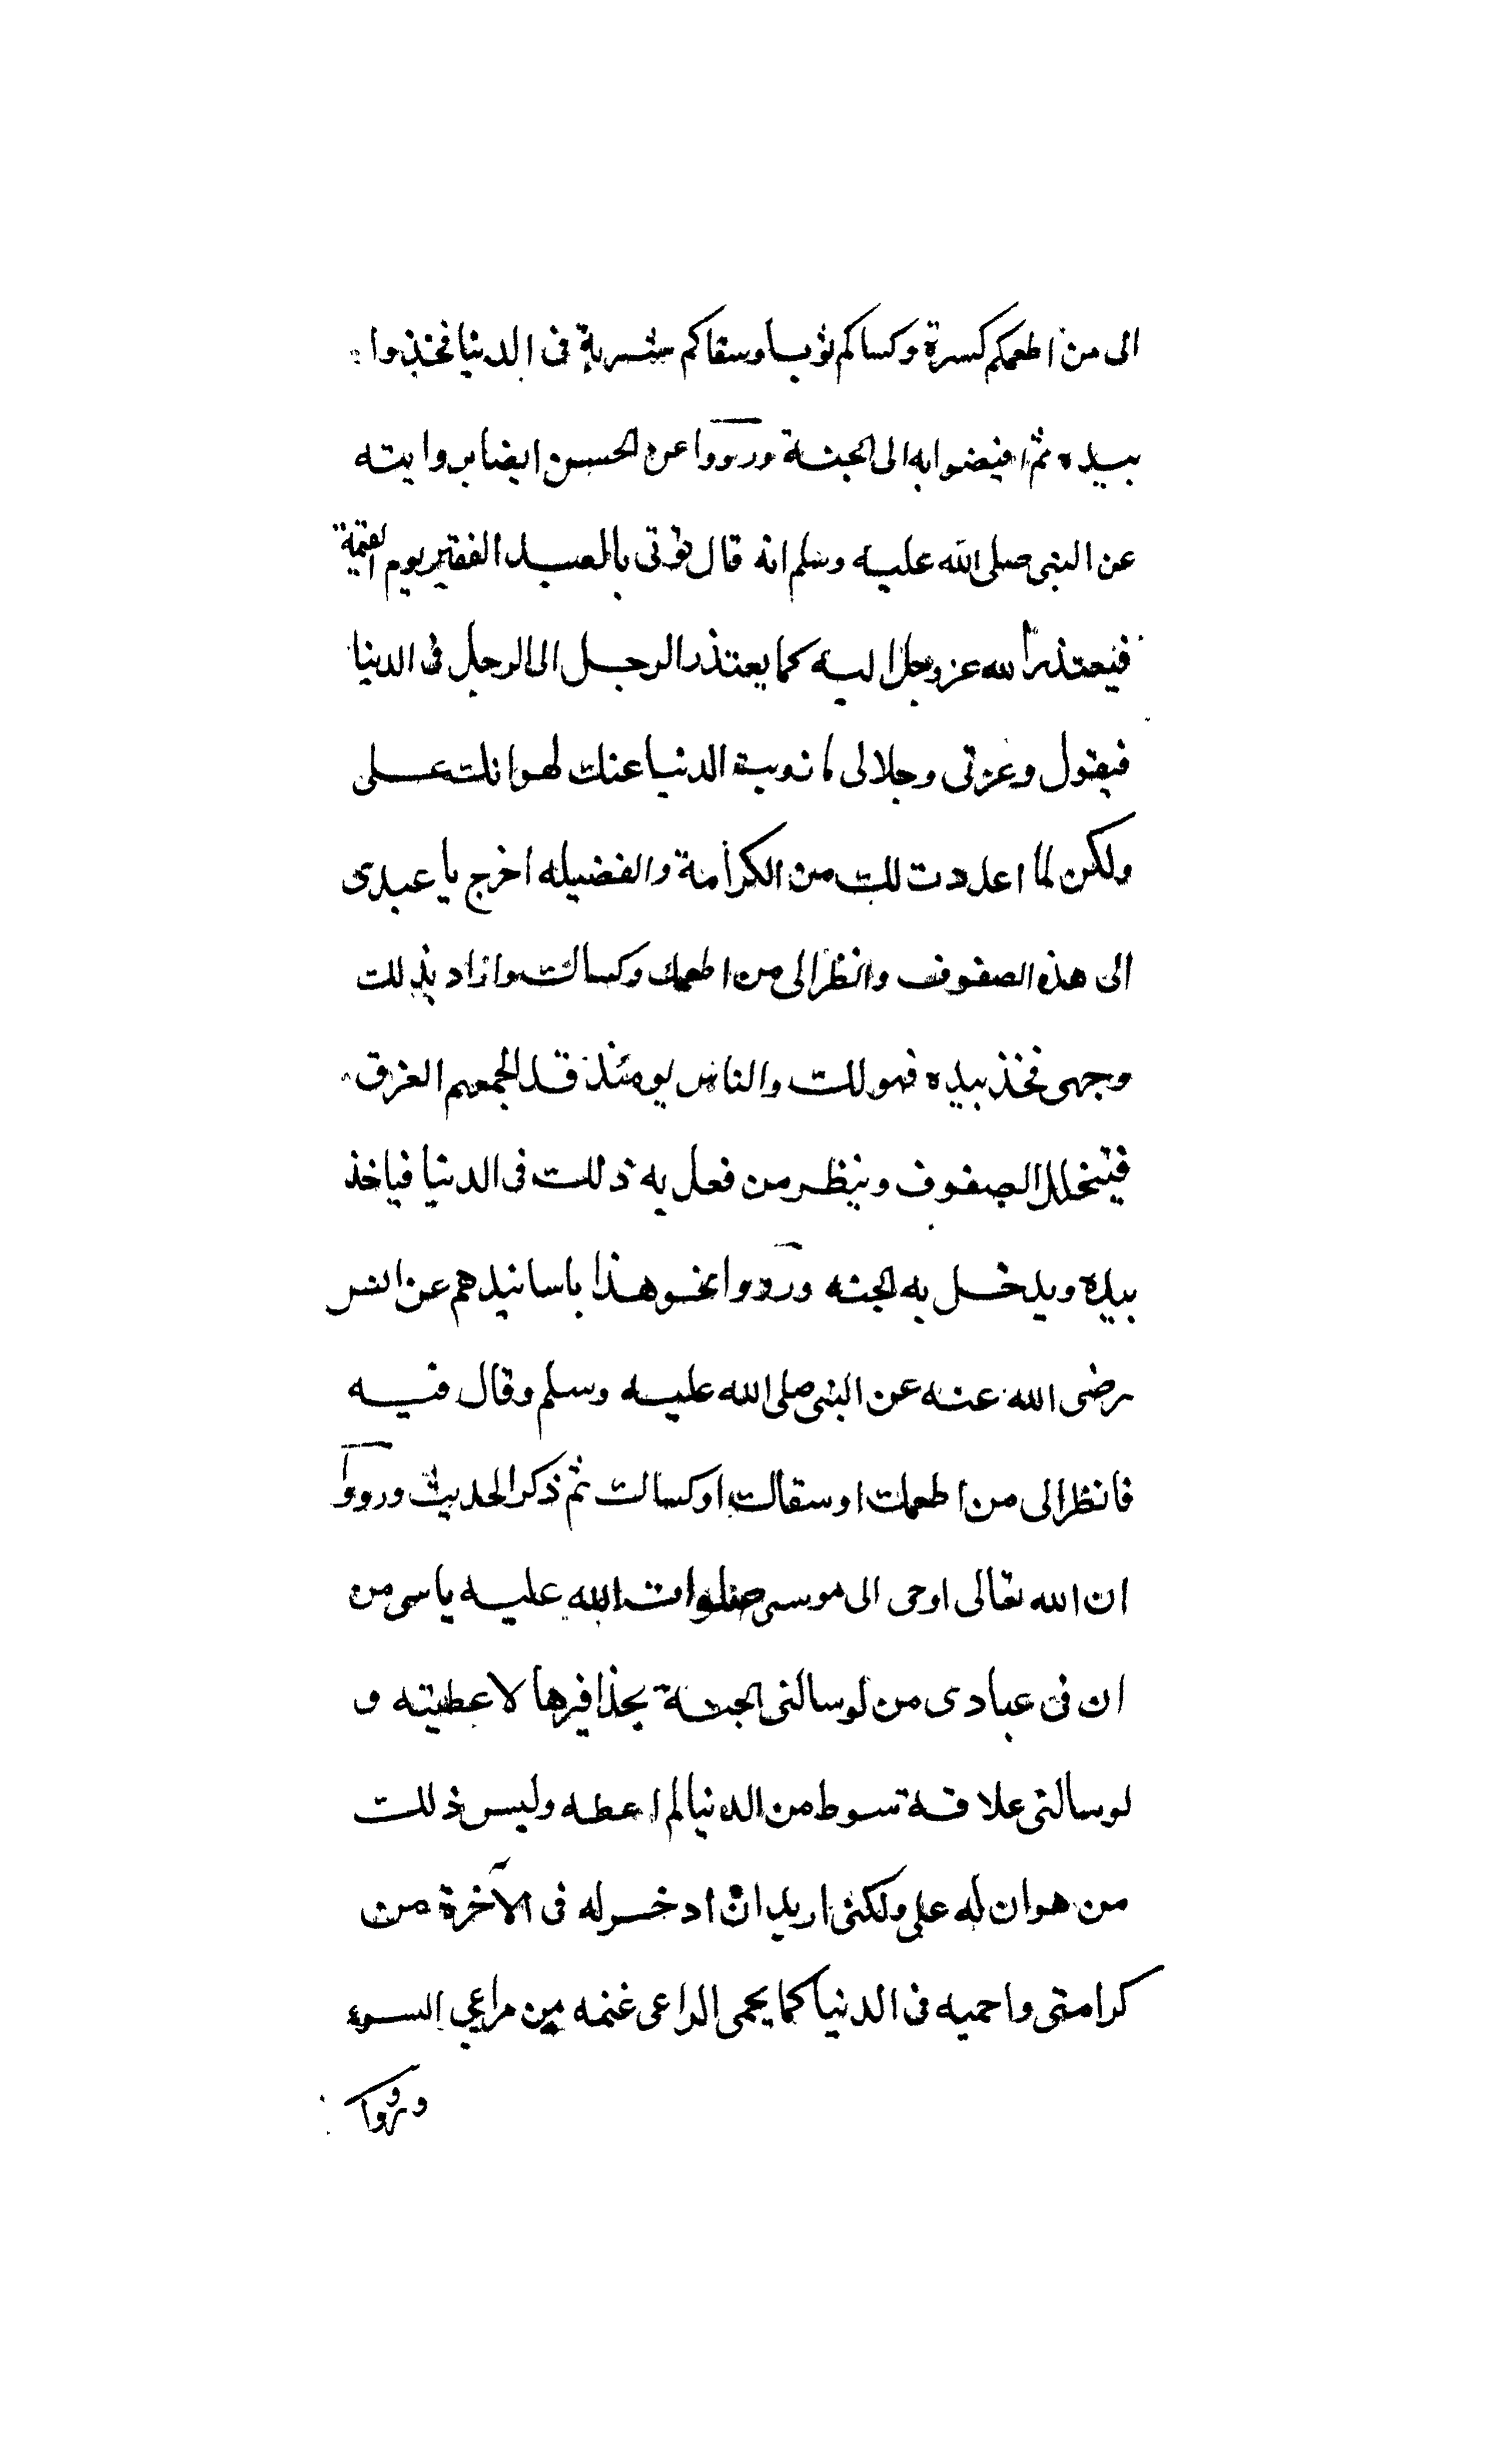 الى من اطعمكم كسرة وكساكم ثوبا وسقاكم شربة فى الدنيا فخذوا
بيده ثم افيضوا به الى الجنة ورووا عن الحسن ايضا بروايته
عن النبى صلى الله عليه وسلم انه قال يؤتى بالعبد الفقير يوم القيمة
فيعتذر الله عز وجل اليه كما يعتذر الرجل الى الرجل فى الدنيا
فيقول وعزتى وجلالى ما زويت الدنيا عنك لهوانك على
ولكن لما اعددت لك من الكرامة والفضيله اخرج يا عبدى
الى هذه الصفوف وانظر الى من اطعمك وكساك وازاد بذلك
وجهى فخذ بيده فهو لك والناس يومئذ قد الجمهم العرق
فيتخلل الصفوف وينظر من فعل به ذلك فى الدنيا فياخذ
بيده ويدخل به الجنه ورووا نحو هذا باسانيدهم عن انس
رضى الله عنه عن النبى صلى الله عليه وسلم وقال فيه
فانظر الى من اطعمك او سقاك او كساك ثم ذكر الحديث ورووا
ان الله تعالى اوحى الى موسى صلوات الله عليه من
ان فى عبادى من لو سالنى الجنة بحذافيرها لاعطيته و
لو سالنى علاقة سوط من الدنيا لم اعطه وليس ذلك
من هوان له على ولكنى اريد ان ادخر له فى الآخرة من
كرامتى واحميه فى الدنيا كما يحمى الراعى غنمه من مراعي السوء
ورووا